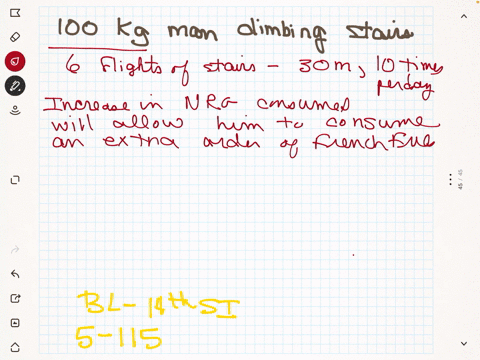 100 Kg man climbing stairs
6 flights of stairs - 30m, 10 times
per day
Increase in NRG consumed
will allow him to consume
an extra order of French Fries
BL-14th SI
5-115
45 / 45